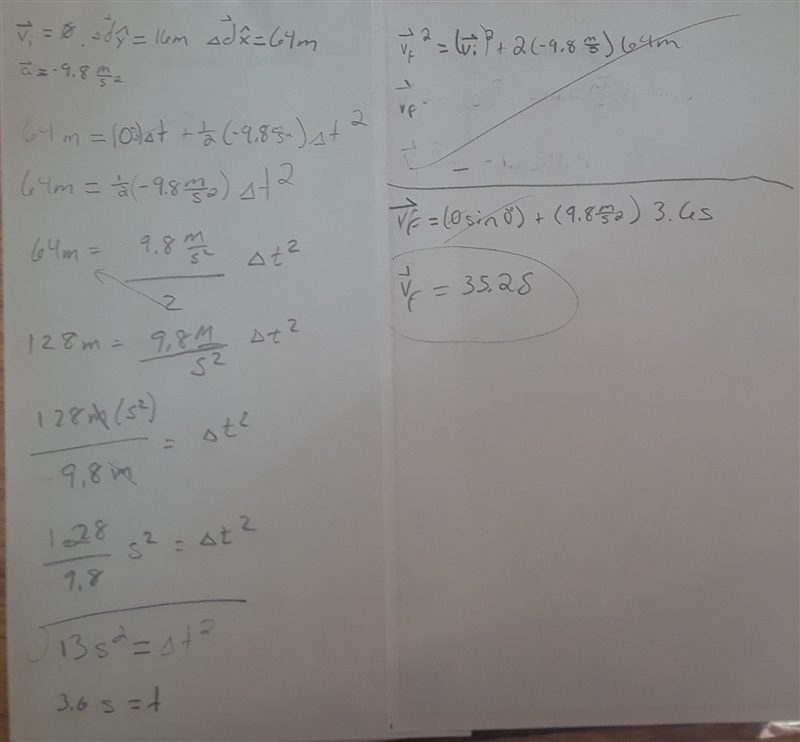 v⃗ᵢ = 0. Δd⃗ŷ = 16m Δd⃗x̂ = 64m
a⃗ = -9.8 m/s²
64m = (0)Δt + 1/2(-9.8 )Δt²
64m = 1/2(-9.8 m/s²) Δt²
64m = 9.8 m/s² / 2 Δt²
128m = 9.8 M/s² Δt²
128m(s²) / 9.8m = Δt²
128 / 9.8 s² = Δt²
√13s² = Δt²
3.6 s = t
v⃗f² = (v⃗ᵢ)² + 2(-9.8 m/s) 64m
v⃗f
v⃗f = (0 sin 0°) + (9.8 m/s²) 3.6s
v⃗f = 35.28